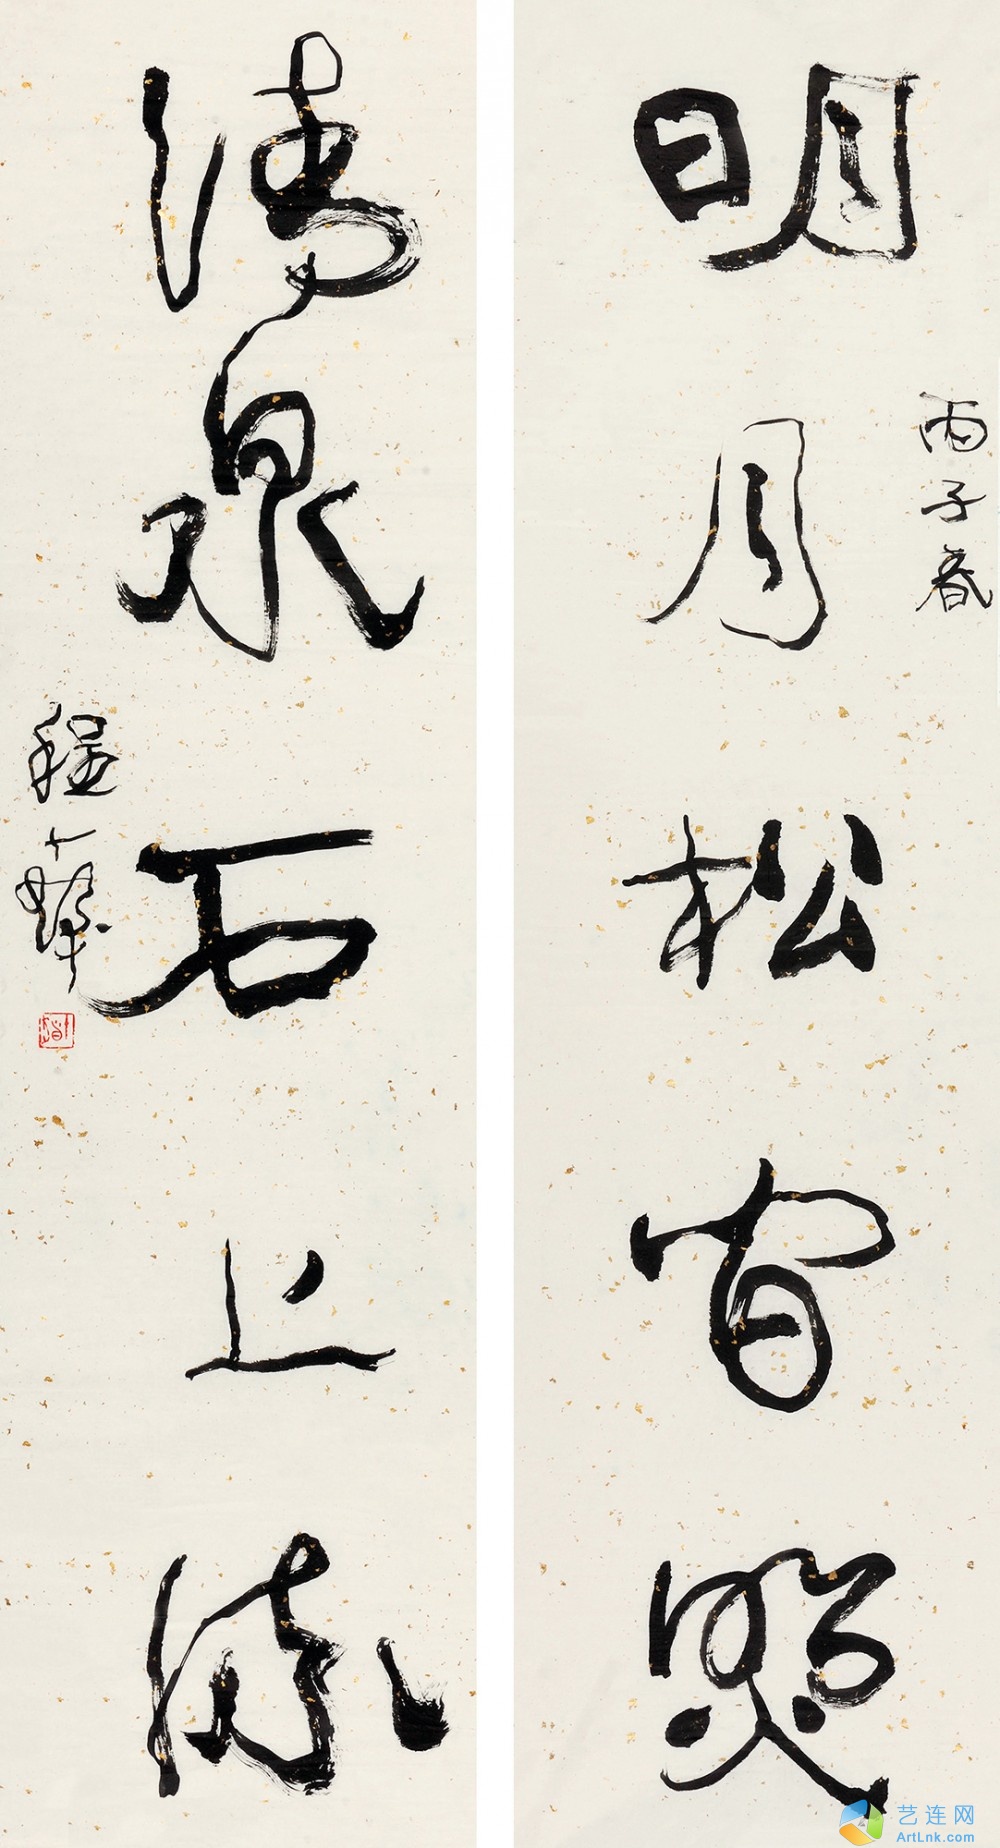 丙子春
明月松間照
清泉石上流
程十髮
艺连网
ArtLnk.com